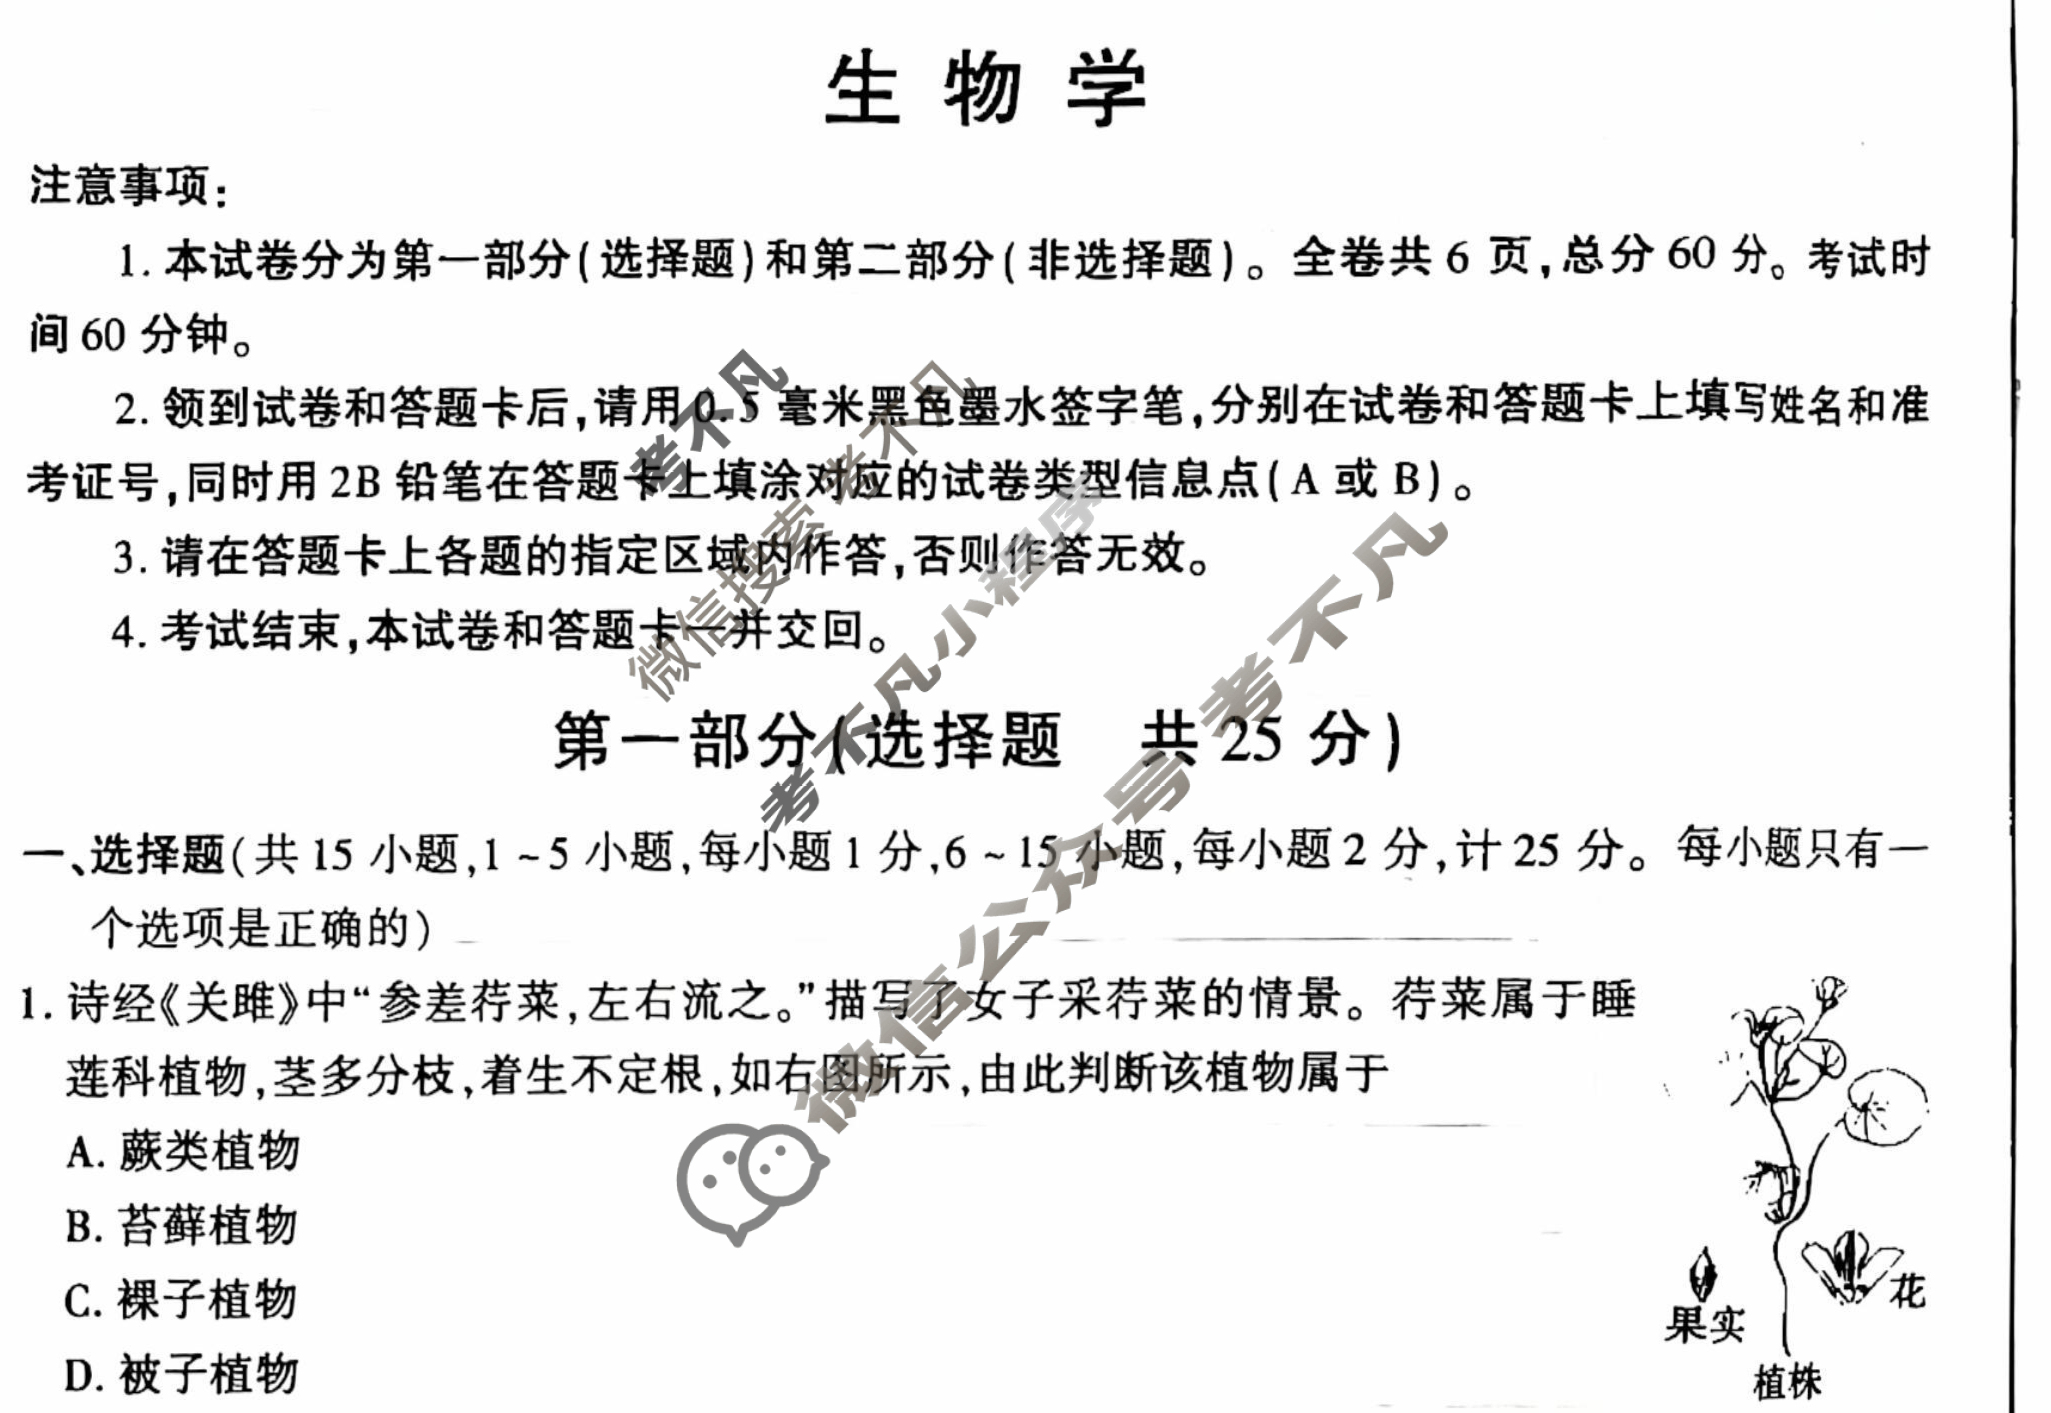 生物学
注意事项：
1. 本试卷分为第一部分(选择题)和第二部分(非选择题)。全卷共 6 页,总分 60 分。考试时
间 60 分钟。
2. 领到试卷和答题卡后,请用 0.5 毫米黑色墨水签字笔,分别在试卷和答题卡上填写姓名和准
考证号,同时用 2B 铅笔在答题卡上填涂对应的试卷类型信息点(A 或 B)。
3. 请在答题卡上各题的指定区域内作答,否则作答无效。
4. 考试结束,本试卷和答题卡一并交回。
第一部分(选择题 共 25 分)
一、选择题(共 15 小题,1~5 小题,每小题 1 分,6~15 小题,每小题 2 分,计 25 分。每小题只有一
个选项是正确的)
1. 诗经《关雎》中“参差荇菜,左右流之。”描写了女子采荇菜的情景。荇菜属于睡
莲科植物,茎多分枝,着生不定根,如右图所示,由此判断该植物属于
A. 蕨类植物
B. 苔藓植物
C. 裸子植物
D. 被子植物
果实
花
植株
考不凡
微信搜索 考不凡
考不凡小程序
微信公众号 考不凡